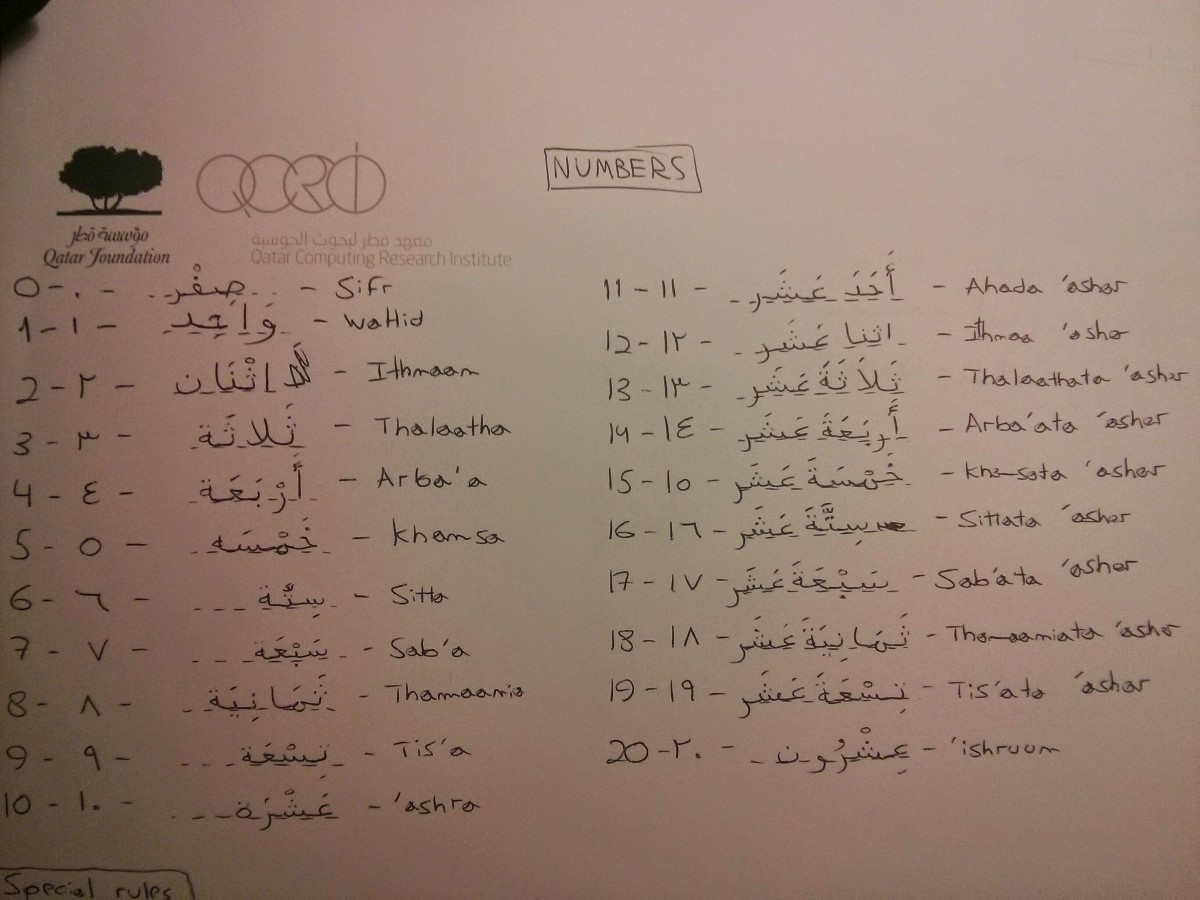 NUMBERS
مؤسسة قطر
Qatar Foundation
معهد قطر لبحوث الحوسبة
Qatar Computing Research Institute
0 - ٠ - صِفْر - Sifr
1 - ١ - وَاحِد - waHid
2 - ٢ - اِثْنَان - Ithnaan
3 - ٣ - ثَلاثَة - Thalaatha
4 - ٤ - أَرْبَعَة - Arba'a
5 - ٥ - خَمْسَه - khamsa
6 - ٦ - سِتَّة - Sitta
7 - ٧ - سَبْعَة - Sab'a
8 - ٨ - ثَمَانِيَة - Thamaania
9 - ٩ - تِسْعَة - Tis'a
10 - ١٠ - عَشْرَة - 'ashra
Special rules
11 - ١١ - أَحَدَ عَشَر - Ahada 'ashar
12 - ١٢ - اثنا عَشَر - Ithnaa 'asha
13 - ١٣ - ثَلاثَةَ عَشَر - Thalaathata 'ashar
14 - ١٤ - أَربَعَةَ عَشَر - Arba'ata 'ashar
15 - ١٥ - خَمْسَةَ عَشَر - 'ashar
16 - ١٦ - سِتَّةَ عَشَر - Sittata 'ashar
17 - ١٧ - سَبْعَةَ عَشَر - Sab'ata 'ashar
18 - ١٨ - ثَمَانِيَةَ عَشَر - 'ashar
19 - ١٩ - تِسْعَةَ عَشَر - Tis'ata 'ashar
20 - ٢٠ - عِشْرُون - 'ishruun